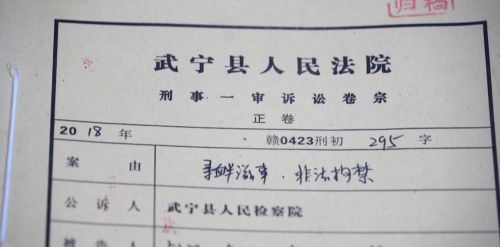 归档
武宁县人民法院
刑事一审诉讼卷宗
正卷
2018年 赣0423刑初 295 字
案由 寻衅滋事.非法拘禁
公诉人 武宁县人民检察院
被告人